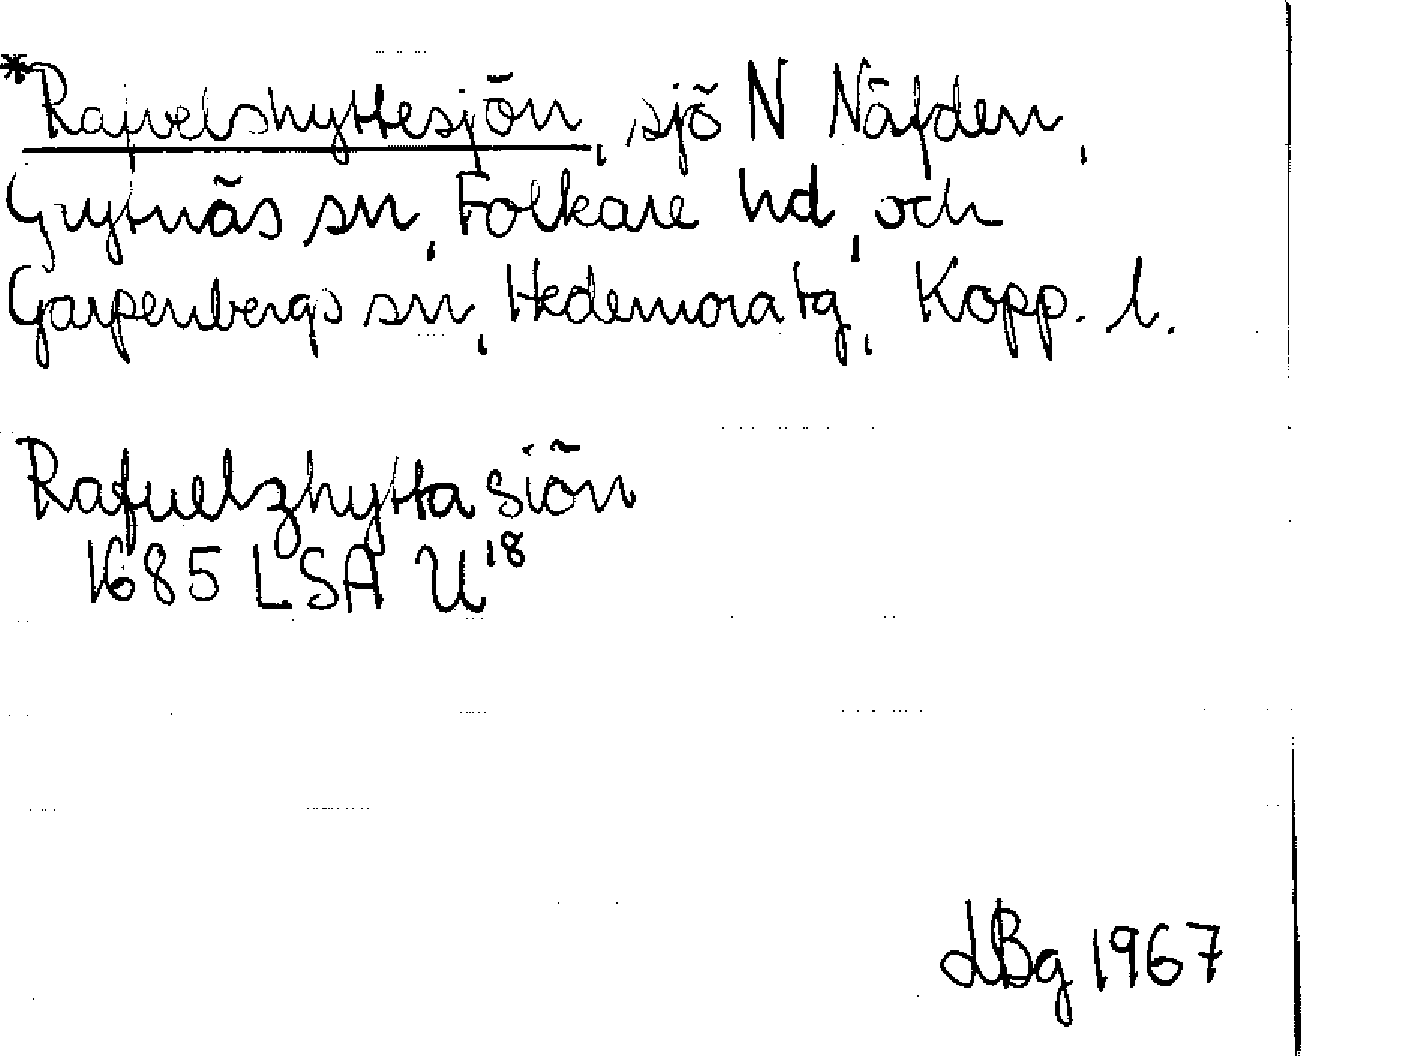 *Rafvelshyttesjön, sjö N Näfden,
Grytnäs sn, Folkare hd, och
Garpenbergs sn, Hedemora tg, Kopp. l.
Rafuelzhytta siön
1685 LSA U18
LBg 1967